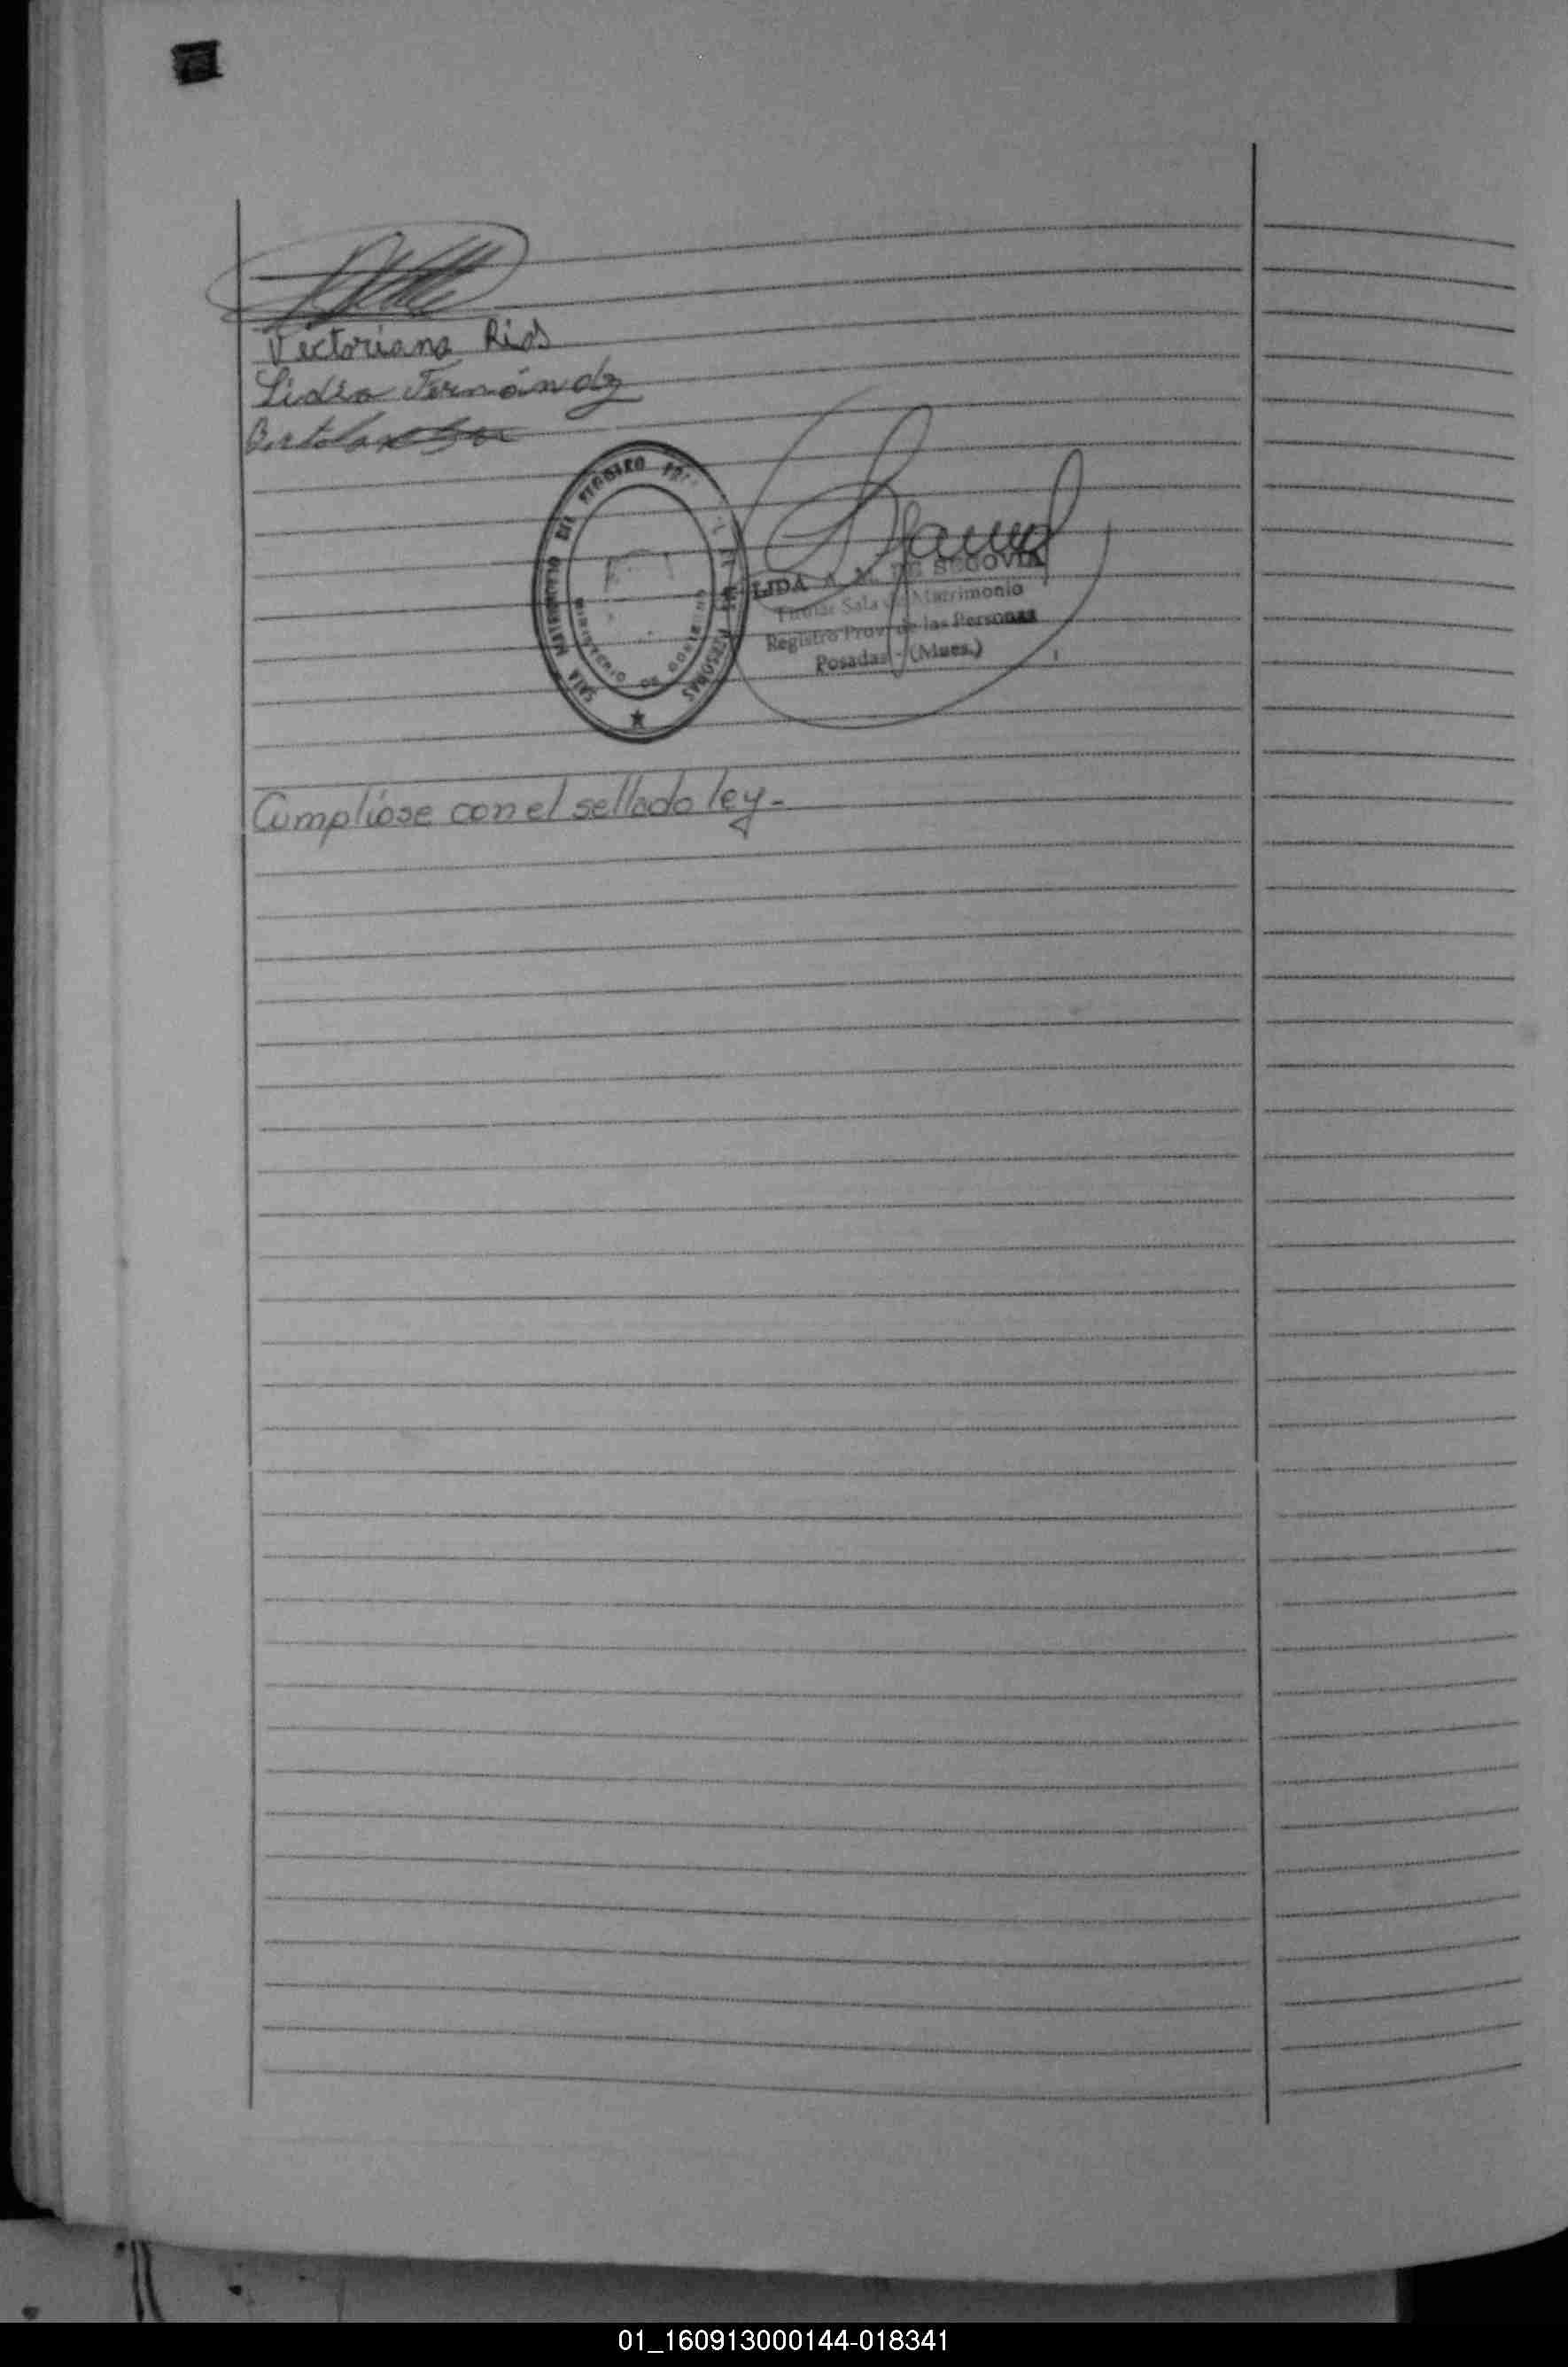 Victoriana Rios
Lidia Fernández
SALA MATRIMONIO DEL REGISTRO PROV. DE LAS PERSONAS
MINISTERIO DE GOBIERNO
LIDA A. M. DE SEGOVIA
Titular Sala de Matrimonio
Registro Prov. de las Personas
Posadas - (Mnes.)
Cumplióse con el sellado ley.-
01_160913000144-018341